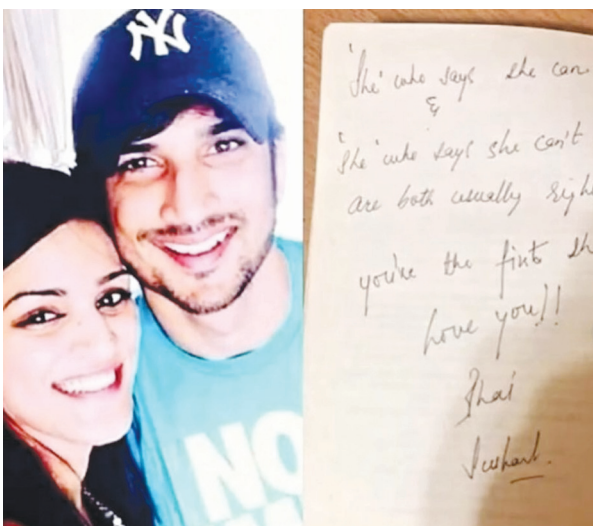 NY
NO
'She' who says she can
&
'She' who says she can't
are both usually right
you're the first she
Love you!!
Bhai
Sushant.